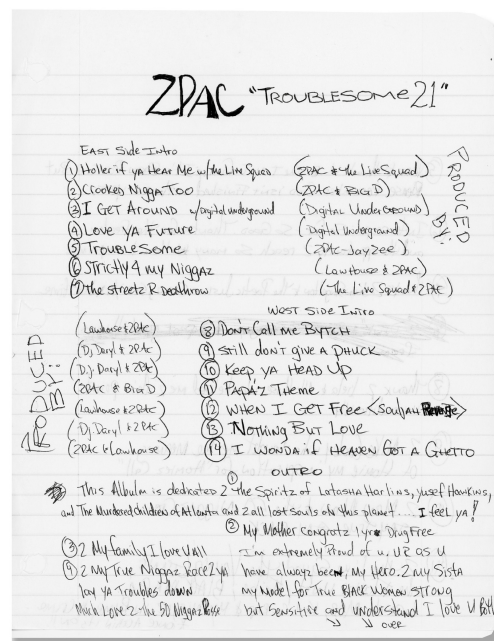 2PAC "TROUBLESOME 21"
EAST Side Intro
PRODUCED BY:
1 Holler if ya Hear Me w/the Live Squad (2PAC & the Live Squad)
2 Crooked Nigga Too (2PAC & Big D)
3 I Get Around w/Digital underground (Digital Underground)
4 Love ya Future (Digital Underground)
5 TroubleSome (2PAC-Jay Zee)
6 Strictly 4 my Niggaz (LawHouse & 2PAC)
7 the streetz R Deathrow (the Live Squad & 2PAC)
WEST Side INTRO
PRODUCED BY:
(Lawhouse & 2PAC) 8 Don't Call me BYTCH
(Dj Daryl & 2PAC) 9 still don't give a PHUCK
(D.j. Daryl & 2PAC) 10 Keep ya Head Up
(2PAC & Big D) 11 PAPA'Z Theme
(Lawhouse & 2PAC) 12 WHEN I GET Free <Souljah >
(Dj Daryl & 2PAC) 13 Nothing But Love
(2PAC & Lawhouse) 14 I WONDA if HEAVEN GOT A GHETTO
OUTRO
1 This Album is dedicated 2 the Spiritz of Latasha Harlins, Yusef Hawkins,
and The Murdered children of Atlanta and 2 all lost souls on this planet.... I feel ya!
2 My Mother congratz 1 yr Drug Free
I'm extremely Proud of u, UR as u
have always been, my Hero. 2 my Sista
my Model for True Black Women STRONG
but Sensitive and understand I love U
over
3 2 My family I love U all
4 2 my True Niggaz 2 ya
lay ya Troubles down
Much Love 2 the 50 Niggaz